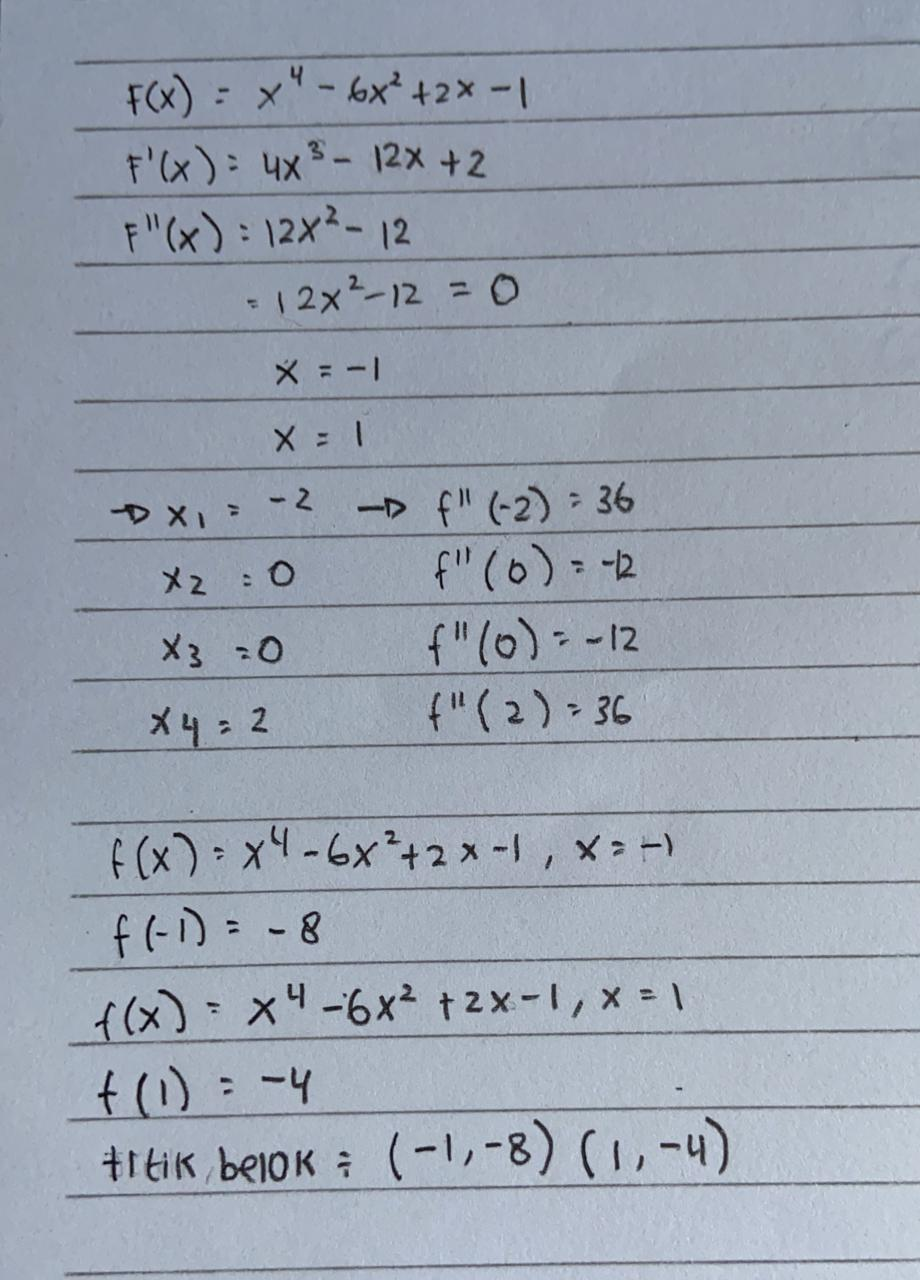 F(x) = x⁴ - 6x² + 2x - 1
F'(x) = 4x³ - 12x + 2
F''(x) = 12x² - 12
= 12x² - 12 = 0
x = -1
x = 1
→ x₁ = -2 → f''(-2) = 36
x₂ = 0 f''(0) = -12
x₃ = 0 f''(0) = -12
x₄ = 2 f''(2) = 36
f(x) = x⁴ - 6x² + 2x - 1, x = -1
f(-1) = -8
f(x) = x⁴ - 6x² + 2x - 1, x = 1
f(1) = -4
titik belok = (-1, -8) (1, -4)